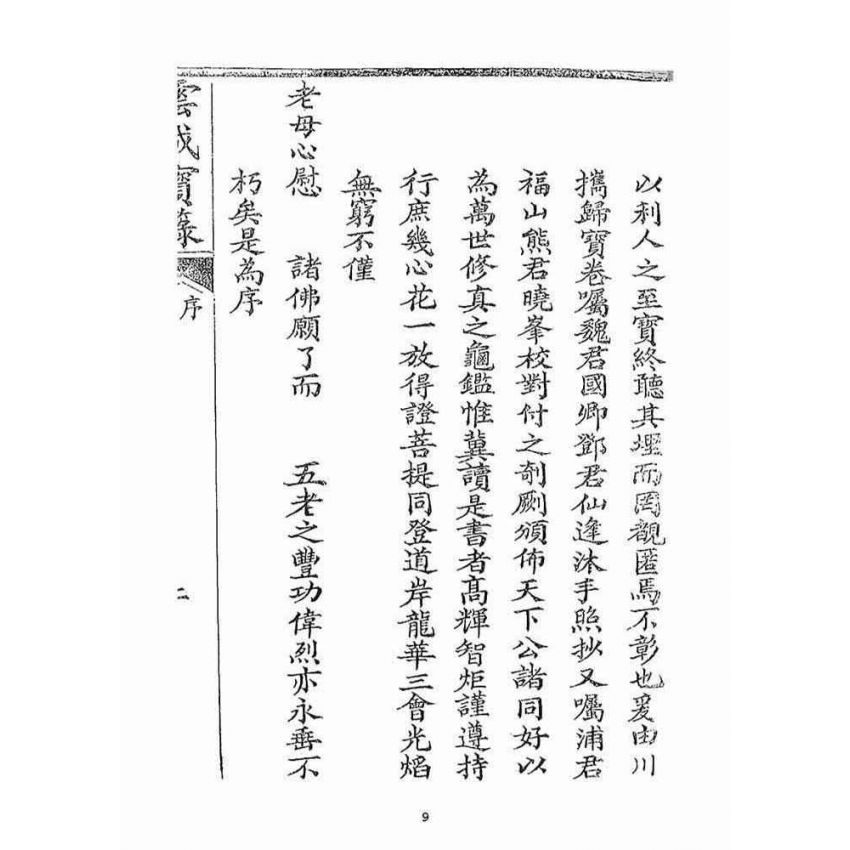 以利人之至寶終聽其埋而罔覩匿焉不彰也爰由川
攜歸寶卷囑魏君國卿鄧君仙逢沐手照抄又囑浦君
福山熊君曉峯校對付之剞劂頒佈天下公諸同好以
為萬世修真之龜鑑惟冀讀是書者高輝智炬謹遵持
行庶幾心花一放得證菩提同登道岸龍華三會光焰
無窮不僅
老母心慰 諸佛願了而 五老之豐功偉烈亦永垂不
朽矣是為序
雲城寶籙 序 二
9